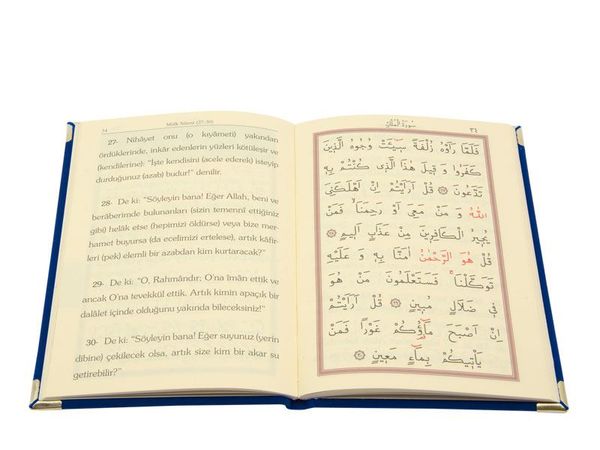 34
Mülk Sûresi (27-30)
27- Nihâyet onu (o kıyâmeti) yakından
gördüklerinde, inkâr edenlerin yüzleri kötüleşir ve
(kendilerine): “İşte kendisini (acele ederek) isteyip
durduğunuz (azab) budur!” denilir.
28- De ki: “Söyleyin bana! Eğer Allah, beni ve
berâberimde bulunanları (sizin temenni ettiğiniz
gibi) helâk etse (hepimizi öldürse) veya bize mer-
hamet buyursa (da ecelimizi ertelese), artık kâfir-
leri (pek) elemli bir azabdan kim kurtaracak?”
29- De ki: “O, Rahmândır; O'na îman ettik ve
ancak O'na tevekkül ettik. Artık kimin apaçık bir
dalâlet içinde olduğunu yakında bileceksiniz!”
30- De ki: “Söyleyin bana! Eğer suyunuz (yerin
dibine) çekilecek olsa, artık size kim bir akar su
getirebilir?”
سُورَةُ الْمُلْكِ
٣٤
فَلَمَّا رَاَوْهُ زُلْفَةً سٖٓيـَٔتْ وُجُوهُ الَّذٖينَ
كَفَرُوا وَ قٖيلَ هٰذَا الَّذٖى كُنْتُمْ بِهٖ
تَدَّعُونَ ۞ قُلْ اَرَاَيْتُمْ اِنْ اَهْلَكَنِىَ
اللّٰهُ وَ مَنْ مَعِىَ اَوْ رَحِمَنَا ۙ فَمَنْ
يُجٖيرُ الْكَافِرٖينَ مِنْ عَذَابٍ اَلٖيمٍ ۞
قُلْ هُوَ الرَّحْمٰنُ اٰمَنَّا بِهٖ وَ عَلَيْهِ
تَوَكَّلْنَا ۚ فَسَتَعْلَمُونَ مَنْ هُوَ
فٖى ضَلَالٍ مُبٖينٍ ۞ قُلْ اَرَاَيْتُمْ
اِنْ اَصْبَحَ مَٓاؤُ۬كُمْ غَوْرًا فَمَنْ
يَاْتٖيكُمْ بِمَٓاءٍ مَعٖينٍ ۞